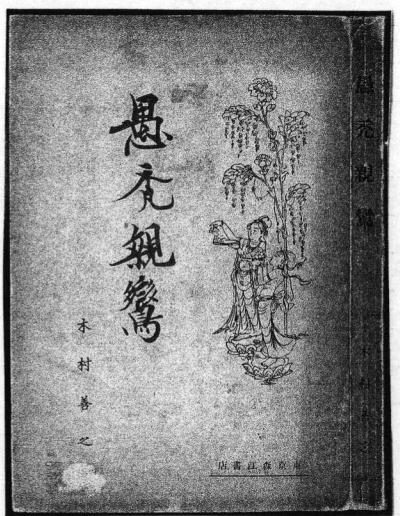 愚禿親鸞
木村善之
東京森江書店
愚禿親鸞
木村善之